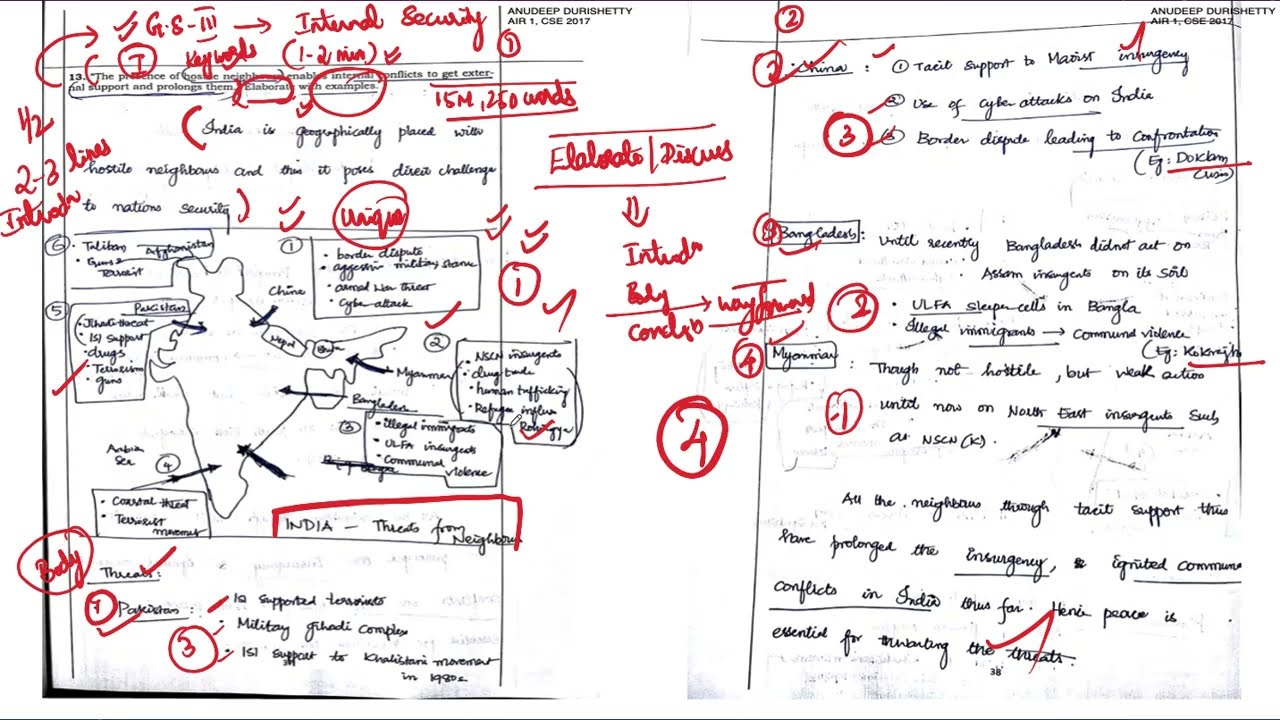 ANUDEEP DURISHETTY
AIR 1, CSE 2017
G.S-III → Internal Security
I
Keywords
(1-2 min)
1
13. "The presence of hostile neighbours enables internal conflicts to get exter-
nal support and prolongs them." Elaborate with examples.
15M, 250 words
1/2
2-3 lines
Introdn
India is geographically placed with
hostile neighbours and this it poses direct challenge
to nations security
Unique
6
• Taliban Afghanistan
• Guns
Terrorist
1
China
• border dispute
• aggressive military stance
• armed threat
• Cyber attack
1
5
Pakistan
• Jihadi threat
ISI support
• drugs
• Terrorism
• guns
Nepal
2
Myanmar
• NSCN insurgents
• drug trade
• human trafficking
• Refugee influx
Rohingya
Bangladesh
3
• illegal immigrants
• ULFA insurgents
• Communal
violence
Arabian
Sea
4
• Coastal threat
• Terrorist
movement
INDIA — Threats from
Neighbours
Body
Threats:
1
Pakistan:
ISI supported terrorists
Military Jihadi Complex
ISI support to Khalistani movement
in 1980s
3
38
Elaborate/Discuss
⇓
Introdn
Body
→ way forward
Conclsn
4
ANUDEEP DURISHETTY
AIR 1, CSE 2017
2
2
China :
① Tacit support to Maoist insurgency
② Use of cyber attacks on India
③ Border dispute leading to confrontation
(Eg: Doklam
Crisis)
3
3
Bangladesh :
Until recently Bangladesh didnot act on
Assam insurgents on its soil
• ULFA sleeper cells in Bangla
• Illegal immigrants → Communal violence
(Eg: Kokrajh
2
4
Myanmar :
Though not hostile, but weak action
until now on North East insurgents such
as NSCN(K).
1
All the neighbours through tacit support thus
have prolonged the insurgency, & ignited commun
conflicts in India thus far. Hence peace is
essential for the threats.
38